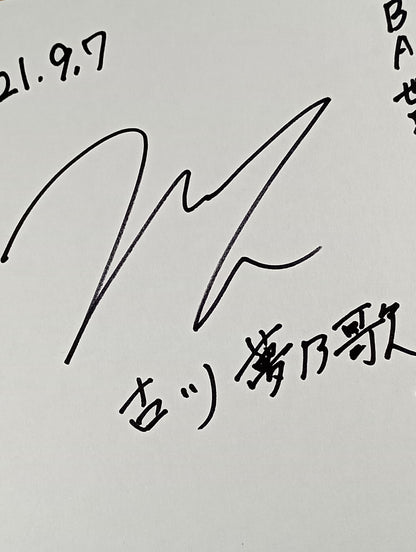 21.9.7
BA世
古川 夢乃歌